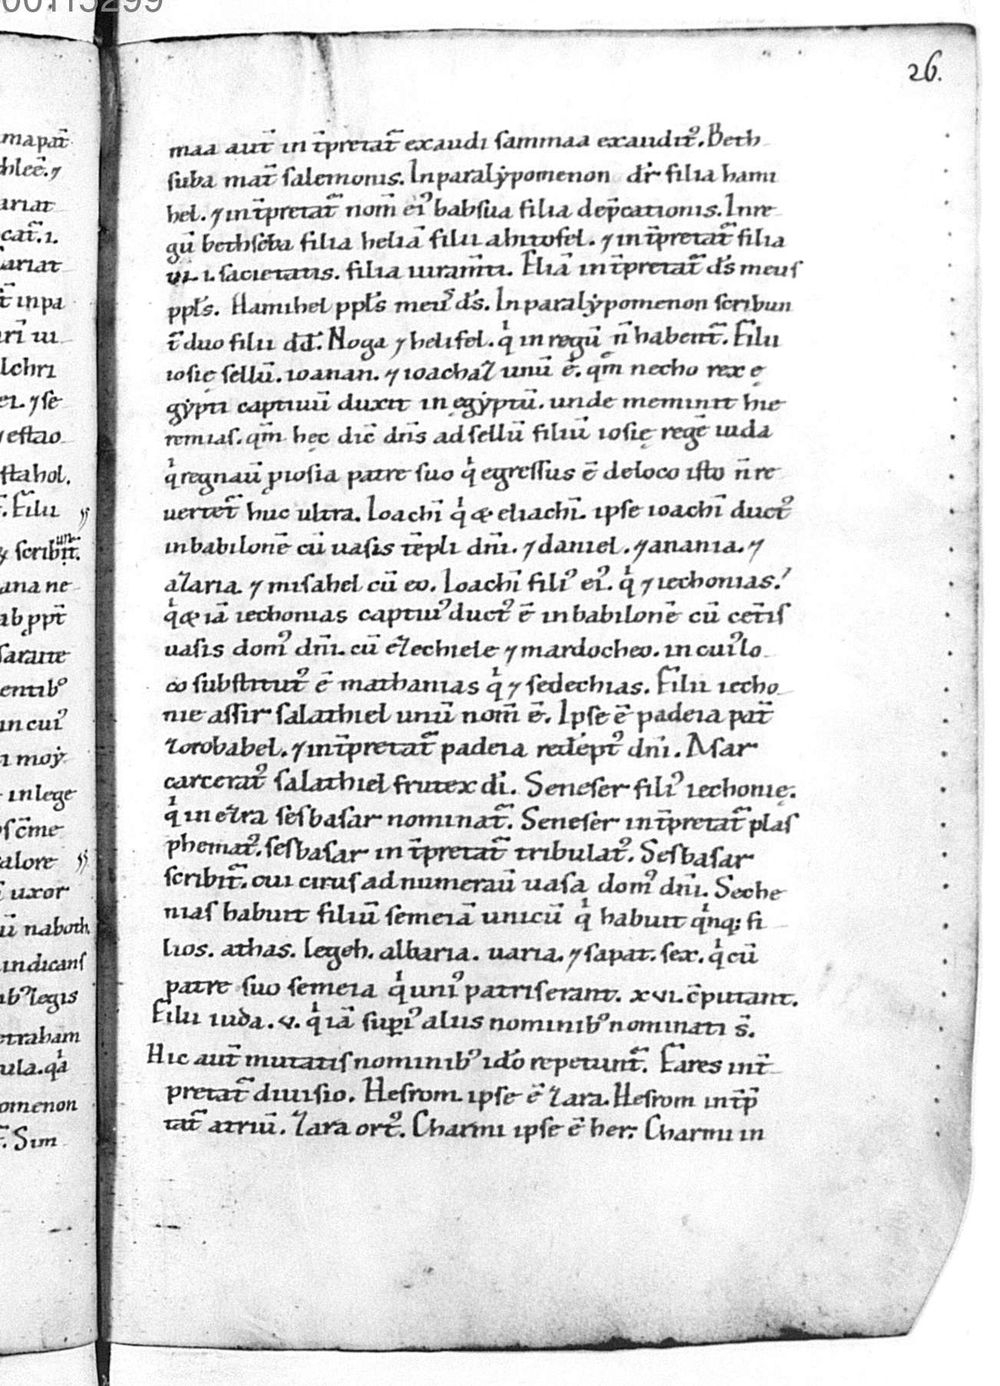 00115299
26.
mapat̄
hleē. ⁊
ariat
cat̄. i.
ariat
t̄ inpa
ri ui
lchri
ei. ⁊ se
⁊ estao
stahol.
. Filii
scribit̄.
ana ne
ab ppt̄
saraite
entib᾽
in cui᾽
i moẏ
inlege
s c̄me
alore
uxor
ū naboth.
indicans
ib᾽ legis
etraham
ula. qa
omenon
. Sim
maa aut̄ in t̄pretat̄ exaudi sammaa exaudit᾽. Beth
suba mat̄ salemonis. Inparalẏpomenon dr̄ filia hami
hel. ⁊ in t̄pretat̄ nom̄ ei᾽ babsua filia dep̄cationis. In re
gū bethseba filia heliā filii ahitofel. ⁊ in t̄pretat̄ filia
vii. i. sacietatis. filia iuram̄ti. Eliā in t̄pretat̄ ds̄ meus
ppl̄s. Hamihel ppl̄s meus ds̄. In paralẏpomenon scribun
t̄ duo filii dd̄. Noga ⁊ helisel. qͥ in regū n̄ habent̄. Filii
iosię sellū. ioanan. ⁊ ioachaz unū ē. qm̄ necho rex ę
gẏpti captiuū duxit in ęgẏptū. unde meminit hie
remias. qm̄ hęc dic̄ dn̄s ad sellū filiū iosię regē iuda
qͥ regnauͫ ꝓ iosia patre suo qͥ egressus ē de loco isto n̄ re
uertet̄ huc ultra. Ioachī qͥ & eliachī. ipse ioachī duct᾽
in babilonē cū uasis tēpli dn̄i. ⁊ daniel. ⁊ anania. ⁊
azaria. ⁊ misahel cū eo. Ioachī fili᾽ ei᾽. qͥ ⁊ iechonias.
qͥ & iā iechonias captiu᾽ duct᾽ ē in babilonē cū cet̄is
uasis dom᾽ dn̄i. cū ezechiele ⁊ mardocheo. in cui᾽ lo
co substitut᾽ ē mathanias qͥ ⁊ sedechias. Filii iecho
nie assir salathiel unū nom̄ ē. Ipse ē padeia pat̄
zorobabel. ⁊ in t̄pretat̄ padeia redēpt᾽ dn̄i. Asar
carcerat᾽ salathiel frutex di. Seneser fili᾽ iechonię.
qͥ in ezra sesbasar nominat̄. Seneser in t̄pretat̄ plas
phemat᾽. sesbasar in t̄pretat̄ tribulat᾽. Sesbasar
scribit̄. cui cirus ad numerauͫ uasa dom᾽ dn̄i. Seche
nias habuit filiū semeiā unicū qͥ habuit qͥnq; fi
lios. athas. legeh. albaria. uaria. ⁊ sapat. sex. qͥ cū
patre suo semeia qͥ uni᾽ patris erant. xvi. c̄putant.
Filii iuda. v. qͥ iā supi᾽ aliis nominib᾽ nominati s̄.
Hic aut̄ mutatis nominib᾽ idō repetunt̄. Fares int̄
pretat̄ diuisio. Hesrom. ipse ē zara. Hesrom int̄p̄
tat̄ atriū. Zara ort᾽. Charmi ipse ē her. Charmi in